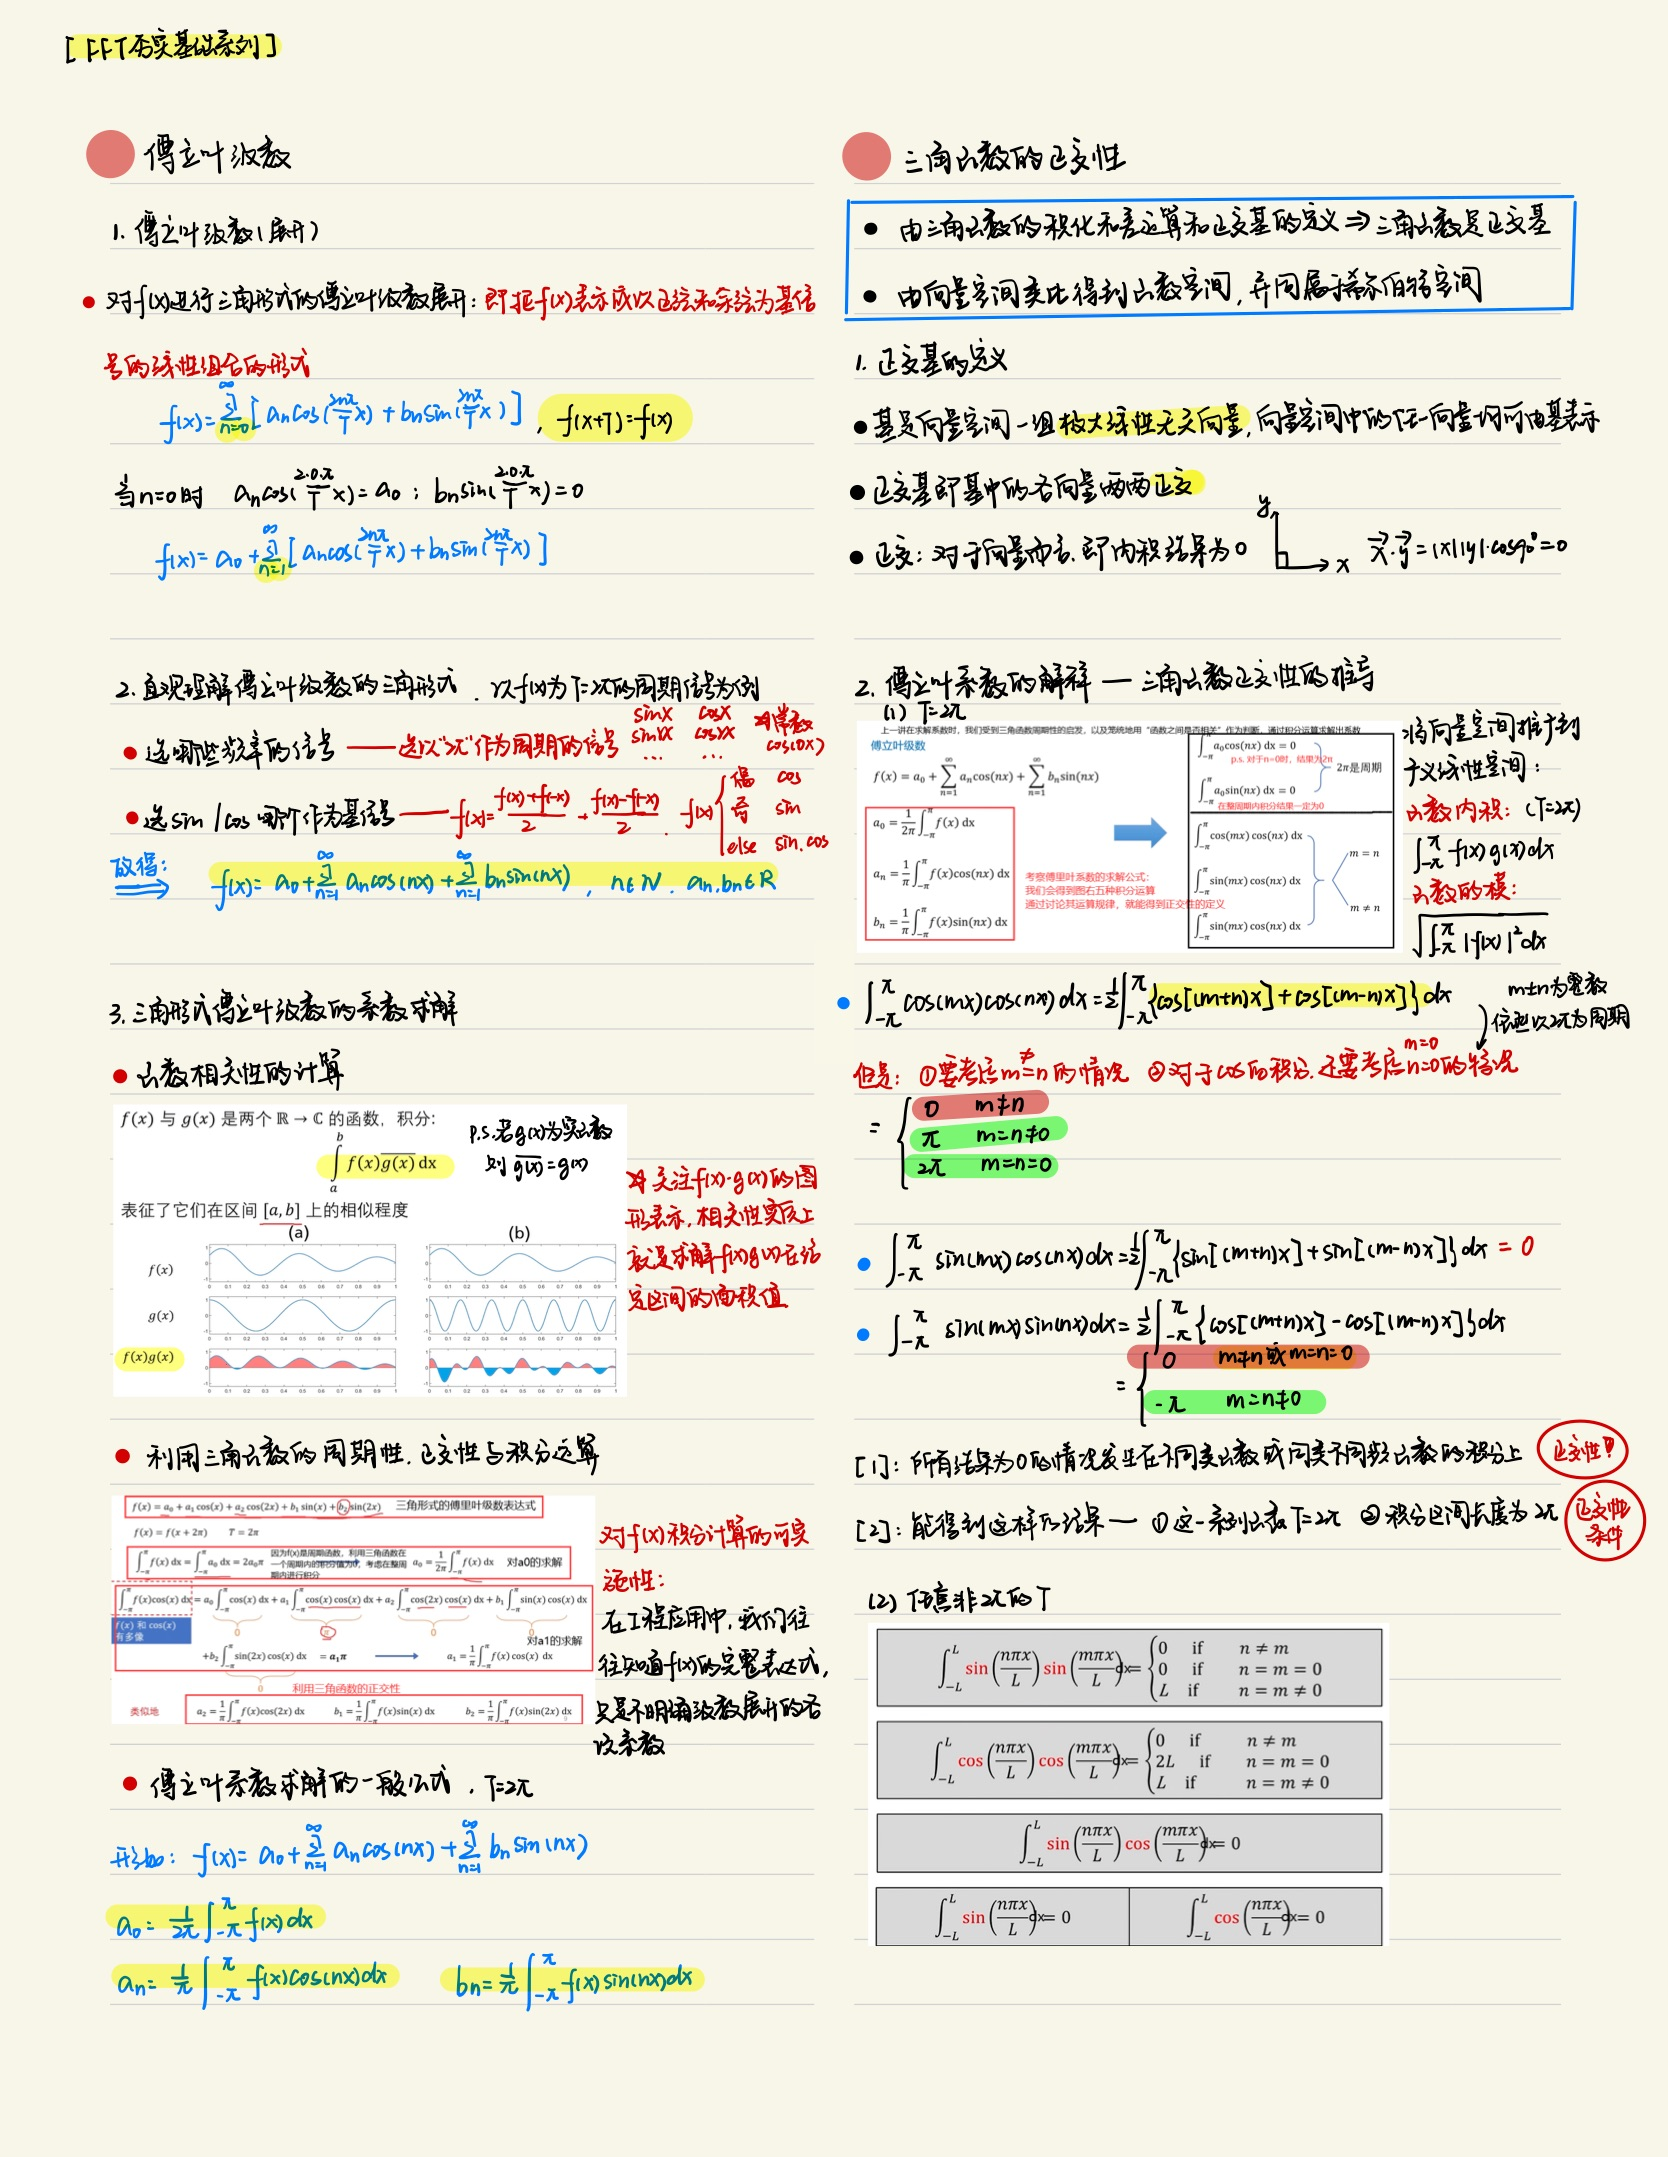 [FFT夯实基础系列]
傅立叶级数
1. 傅立叶级数(展开)
对f(x)进行三角形式的傅立叶级数展开: 即把f(x)表示成以正弦和余弦为基信
号的线性组合的形式
f(x)=∑_{n=0}^{∞}[a_n cos(2nπ/T x)+b_n sin(2nπ/T x)], f(x+T)=f(x)
当n=0时 a_n cos(2·0·π/T x)=a_0; b_n sin(2·0·π/T x)=0
f(x)=a_0+∑_{n=1}^{∞}[a_n cos(2nπ/T x)+b_n sin(2nπ/T x)]
2. 直观理解傅立叶级数的三角形式. 以f(x)为T=2π的周期信号为例
选哪些频率的信号——选以"2π"作为周期的信号
sinx cosx 对常数
sin2x cos2x cos(0x)
... ...
选sin/cos哪个作为基信号——f(x)=(f(x)+f(-x))/2+(f(x)-f(-x))/2. f(x){偶 cos
奇 sin
else sin.cos
故得: f(x)=a_0+∑_{n=1}^{∞}a_n cos(nx)+∑_{n=1}^{∞}b_n sin(nx), n∈N. a_n,b_n∈R
3. 三角形式傅立叶级数的系数求解
函数相关性的计算
f(x) 与 g(x) 是两个 ℝ → ℂ 的函数, 积分:
∫_a^b f(x)\overline{g(x)} dx
P.S.若g(x)为实函数
则 \overline{g(x)}=g(x)
表征了它们在区间 [a,b] 上的相似程度
(a) (b)
f(x)
g(x)
f(x)g(x)
0 0.1 0.2 0.3 0.4 0.5 0.6 0.7 0.8 0.9 1
对关注f(x)·g(x)的图
形表示,相关性实际上
就是求解f(x)g(x)在给
定区间的面积值
利用三角函数的周期性.正交性与积分运算
f(x) = a_0 + a_1 cos(x) + a_2 cos(2x) + b_1 sin(x) + b_2 sin(2x) 三角形式的傅里叶级数表达式
f(x) = f(x + 2π) T = 2π
∫_{-π}^{π} f(x) dx = ∫_{-π}^{π} a_0 dx = 2a_0π 因为f(x)是周期函数, 利用三角函数在一个周期内的积分值为0, 考虑在整周期内进行积分 a_0 = 1/2π ∫_{-π}^{π} f(x) dx 对a0的求解
∫_{-π}^{π} f(x)cos(x) dx = a_0 ∫_{-π}^{π} cos(x) dx + a_1 ∫_{-π}^{π} cos(x) cos(x) dx + a_2 ∫_{-π}^{π} cos(2x) cos(x) dx + b_1 ∫_{-π}^{π} sin(x) cos(x) dx
f(x) 和 cos(x) 有多像
0 π 0 0
+b_2 ∫_{-π}^{π} sin(2x) cos(x) dx = a_1π a_1 = 1/π ∫_{-π}^{π} f(x) cos(x) dx 对a1的求解
0
利用三角函数的正交性
类似地 a_2 = 1/π ∫_{-π}^{π} f(x)cos(2x) dx b_1 = 1/π ∫_{-π}^{π} f(x)sin(x) dx b_2 = 1/π ∫_{-π}^{π} f(x)sin(2x) dx
对f(x)积分计算的可实
施性:
在工程应用中,我们往
往知道f(x)的完整表达式,
只是不明确级数展开的各
项系数
傅立叶系数求解的一般公式. T=2π
形如: f(x)=a_0+∑_{n=1}^{∞}a_n cos(nx)+∑_{n=1}^{∞}b_n sin(nx)
a_0=1/2π∫_{-π}^{π}f(x)dx
a_n=1/π∫_{-π}^{π}f(x)cos(nx)dx b_n=1/π∫_{-π}^{π}f(x)sin(nx)dx
三角函数的正交性
由三角函数的积化和差运算和正交基的定义⇒三角函数是正交基
由向量空间类比得到函数空间,并同属于希尔伯特空间
1. 正交基的定义
基是向量空间一组极大线性无关向量,向量空间中的任一向量均可由基表示
正交基即基中的各向量两两正交
正交:对于向量而言.即内积结果为0 y x x·y=|x||y|·cos90°=0
2. 傅立叶系数的解释—三角函数正交性的推导
(1) T=2π
上一讲在求解系数时, 我们受到三角函数周期性的启发, 以及笼统地用“函数之间是否相关”作为判断, 通过积分运算求解出系数
傅立叶级数
f(x) = a_0 + ∑_{n=1}^{∞} a_n cos(nx) + ∑_{n=1}^{∞} b_n sin(nx)
a_0 = 1/2π ∫_{-π}^{π} f(x) dx
a_n = 1/π ∫_{-π}^{π} f(x)cos(nx) dx
b_n = 1/π ∫_{-π}^{π} f(x)sin(nx) dx
考察傅里叶系数的求解公式:
我们会得到图右五种积分运算
通过讨论其运算规律, 就能得到正交性的定义
∫_{-π}^{π} a_0cos(nx) dx = 0
p.s. 对于n=0时, 结果为2π
2π是周期
∫_{-π}^{π} a_0sin(nx) dx = 0
在整周期内积分结果一定为0
∫_{-π}^{π} cos(mx) cos(nx) dx
m = n
∫_{-π}^{π} sin(mx) cos(nx) dx
m ≠ n
∫_{-π}^{π} sin(mx) cos(nx) dx
将向量空间推广到
广义线性空间:
函数内积: (T=2π)
∫_{-π}^{π}f(x)g(x)dx
函数的模:
√∫_{-π}^{π}|f(x)|²dx
∫_{-π}^{π}cos(mx)cos(nx)dx=1/2∫_{-π}^{π}{cos[(m+n)x]+cos[(m-n)x]}dx
m±n为整数
依然以2π为周期
但是: ①要考虑m≠=n的情况 ②对于cos的积分.还要考虑m=0 n=0的情况
= {0 m≠n
π m=n≠0
2π m=n=0
∫_{-π}^{π}sin(mx)cos(nx)dx=1/2∫_{-π}^{π}{sin[(m+n)x]+sin[(m-n)x]}dx=0
∫_{-π}^{π}sin(mx)sin(nx)dx=1/2∫_{-π}^{π}{cos[(m+n)x]-cos[(m-n)x]}dx
= {0 m≠n或m=n=0
-π m=n≠0
[1]: 所有结果为0的情况发生在不同类函数或同类不同频函数的积分上 正交性!
[2]: 能得到这样的结果— ①这一系列函数T=2π ②积分区间长度为2π 正交性条件
(2) 任意非2π的T
∫_{-L}^{L} sin(nπx/L) sin(mπx/L) dx= {0 if n ≠ m
0 if n = m = 0
L if n = m ≠ 0
∫_{-L}^{L} cos(nπx/L) cos(mπx/L) dx= {0 if n ≠ m
2L if n = m = 0
L if n = m ≠ 0
∫_{-L}^{L} sin(nπx/L) cos(mπx/L) dx= 0
∫_{-L}^{L} sin(nπx/L) dx= 0 ∫_{-L}^{L} cos(nπx/L) dx= 0